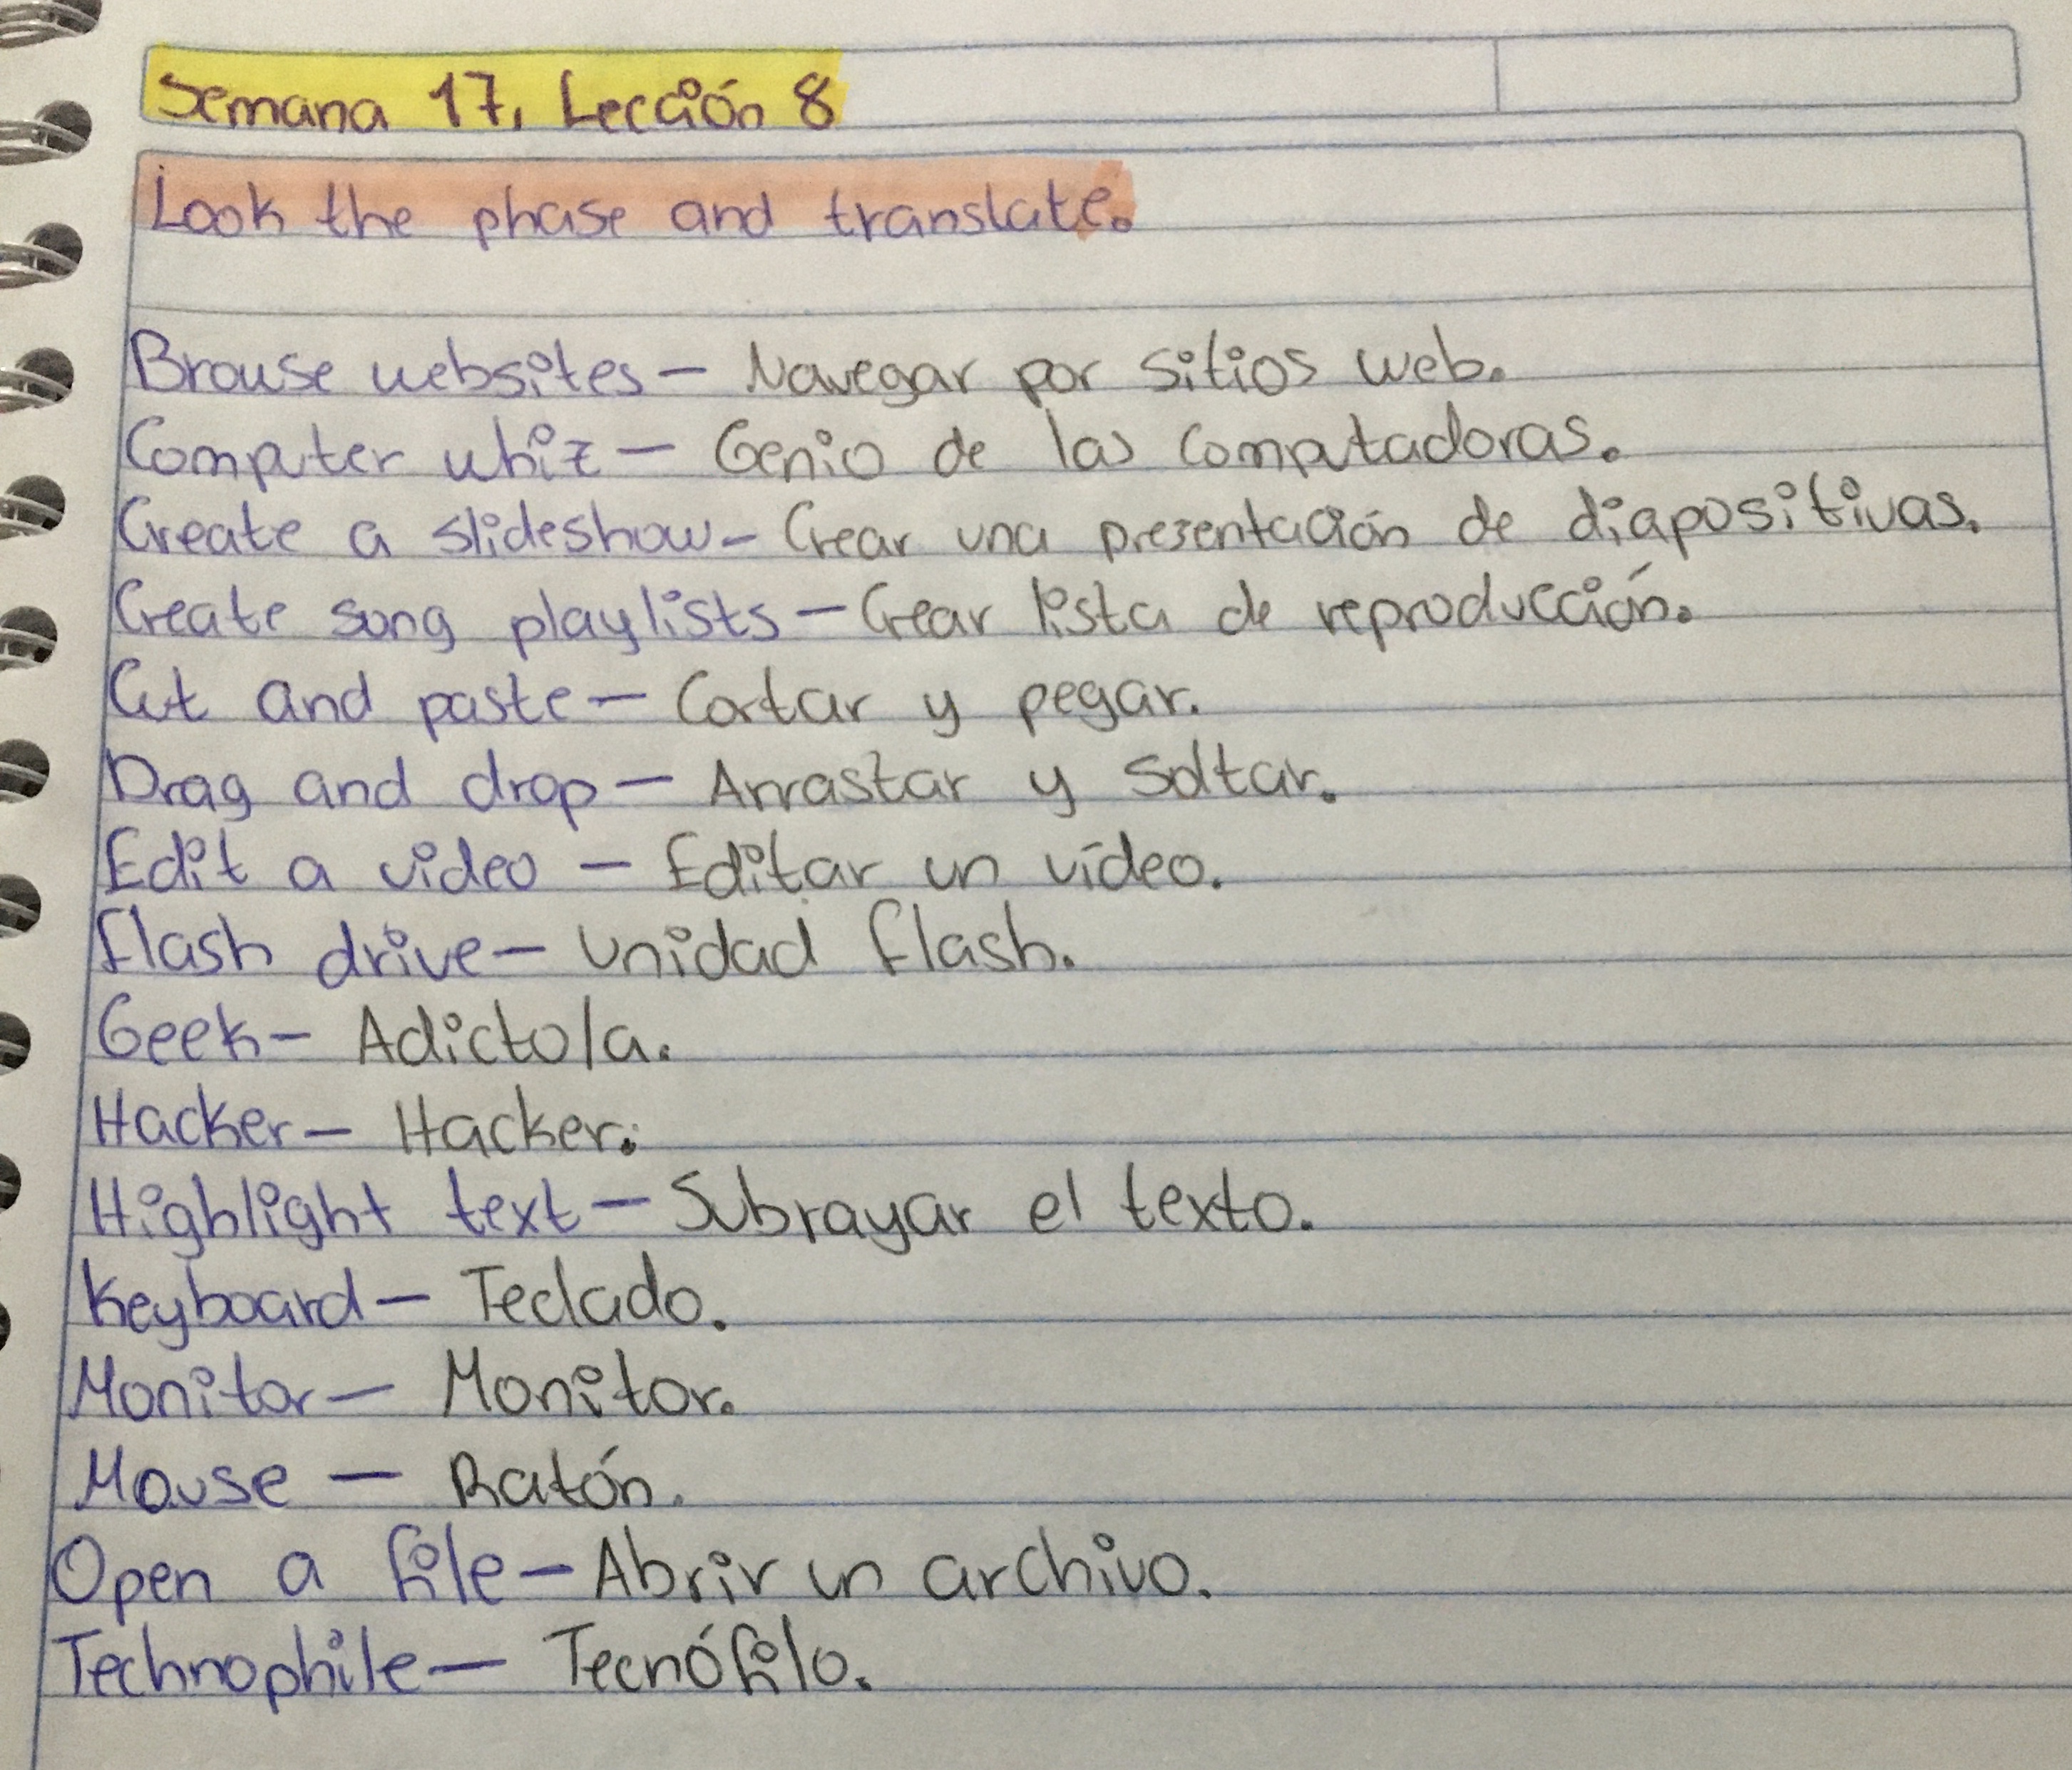 Semana 17, Lección 8
Look the phase and translate.
Browse websites - Navegar por sitios web.
Computer whiz - Genio de las computadoras.
Create a slideshow - Crear una presentación de diapositivas.
Create song playlists - Crear lista de reproducción.
Cut and paste - Cortar y pegar.
Drag and drop - Arrastar y soltar.
Edit a video - Editar un vídeo.
Flash drive - Unidad flash.
Geek - Adicto/a.
Hacker - Hacker.
Highlight text - Subrayar el texto.
Keyboard - Teclado.
Monitor - Monitor.
Mouse - Ratón.
Open a file - Abrir un archivo.
Technophile - Tecnófilo.